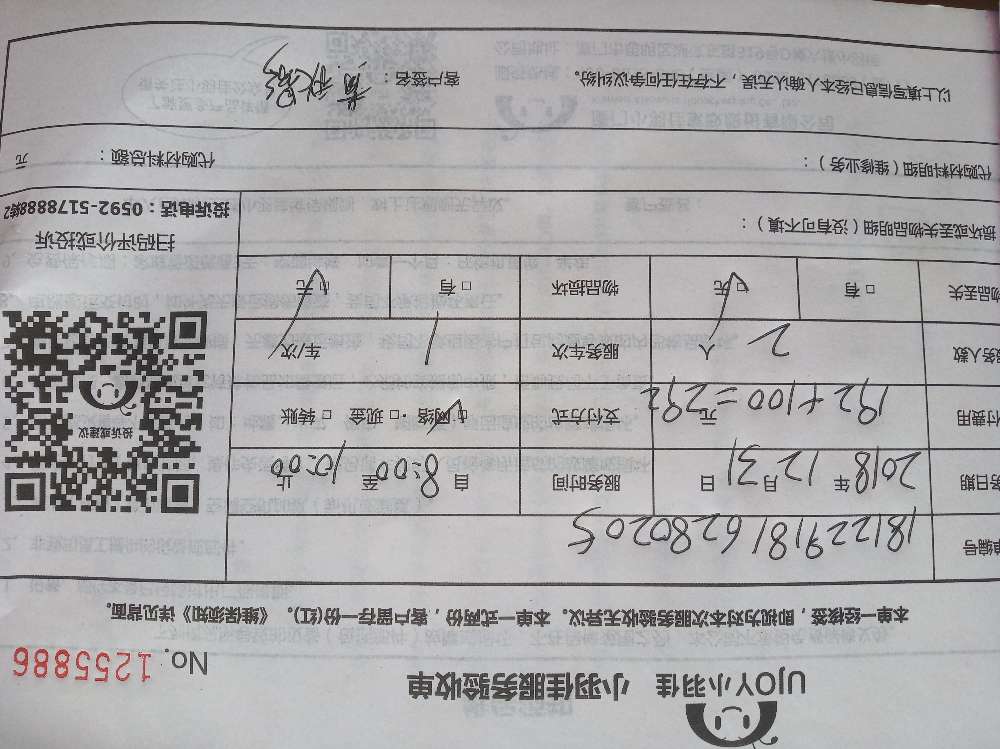 UJOY小羽佳 小羽佳服务验收单
No. 1255886
本单一经核签，即视为对本次服务验收无异议。本单一式两份，客户留存一份(红)。《维保须知》详见背面。
单编号 1812291816280205
务日期 2018年12月31日 服务时间 自8:00至10:00止
付费用 192+100=292元 支付方式 网络 □现金 □转账
务人数 2人 服务车次 1车/次
物品丢失 □有 □无 物品损坏 □有 □无
投诉或建议
扫码评价或投诉
投诉电话：0592-5178888转2
损坏或丢失物品明细（没有可不填）：
代购材料明细（维修业务）： 代购材料总额： 元
以上填写信息已经本人确认无误，不存在任何争议纠纷。 客户签名：